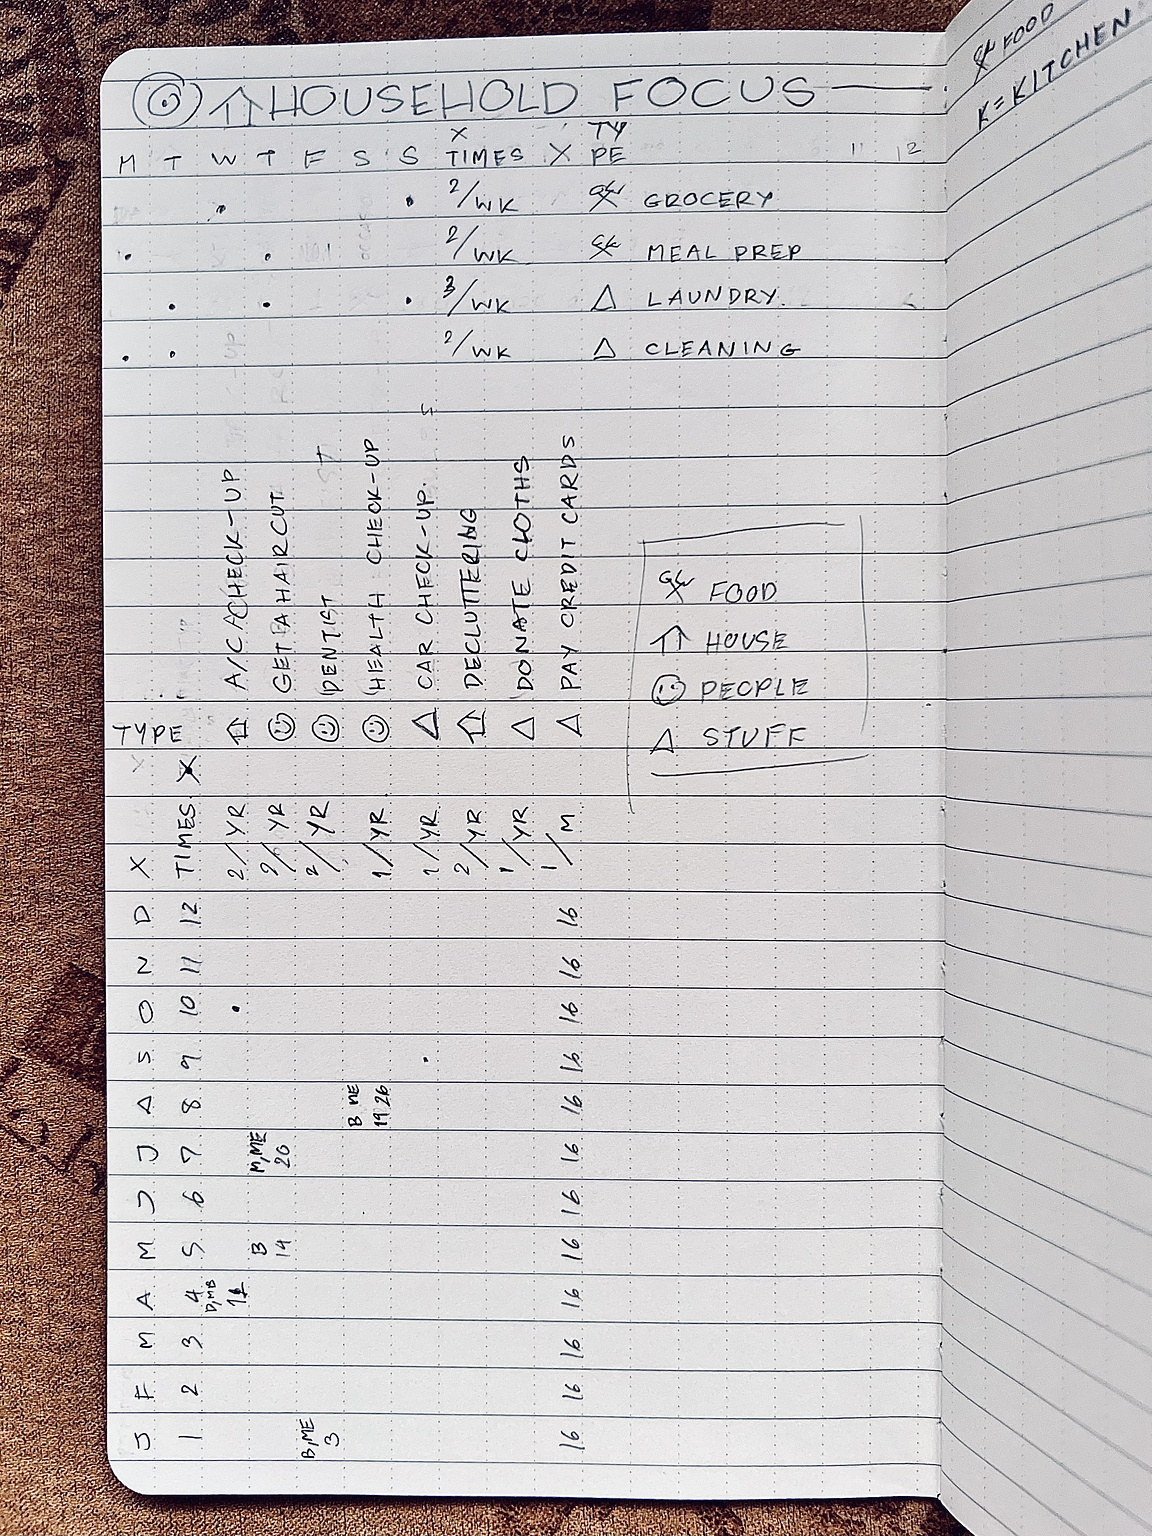 HOUSEHOLD FOCUS
M T W T F S S X TIMES X TYPE 11 12
2/WK GROCERY
2/WK MEAL PREP
3/WK LAUNDRY.
2/WK CLEANING
J F M A M J J A S O N D X TYPE
1 2 3 4 5 6 7 8 9 10 11 12 TIMES X
D,MB 11 2/YR A/C CHECK-UP
B 14 M,ME 26 2/YR GET A HAIRCUT
B,ME 3 2/YR DENTIST
B 19 ME 26 1/YR HEALTH CHECK-UP
1/YR CAR CHECK-UP.
2/YR DECLUTTERING
1/YR DONATE CLOTHS
16 16 16 16 16 16 16 16 16 16 16 16 1/M PAY CREDIT CARDS
FOOD
HOUSE
PEOPLE
STUFF
FOOD
K=KITCHEN